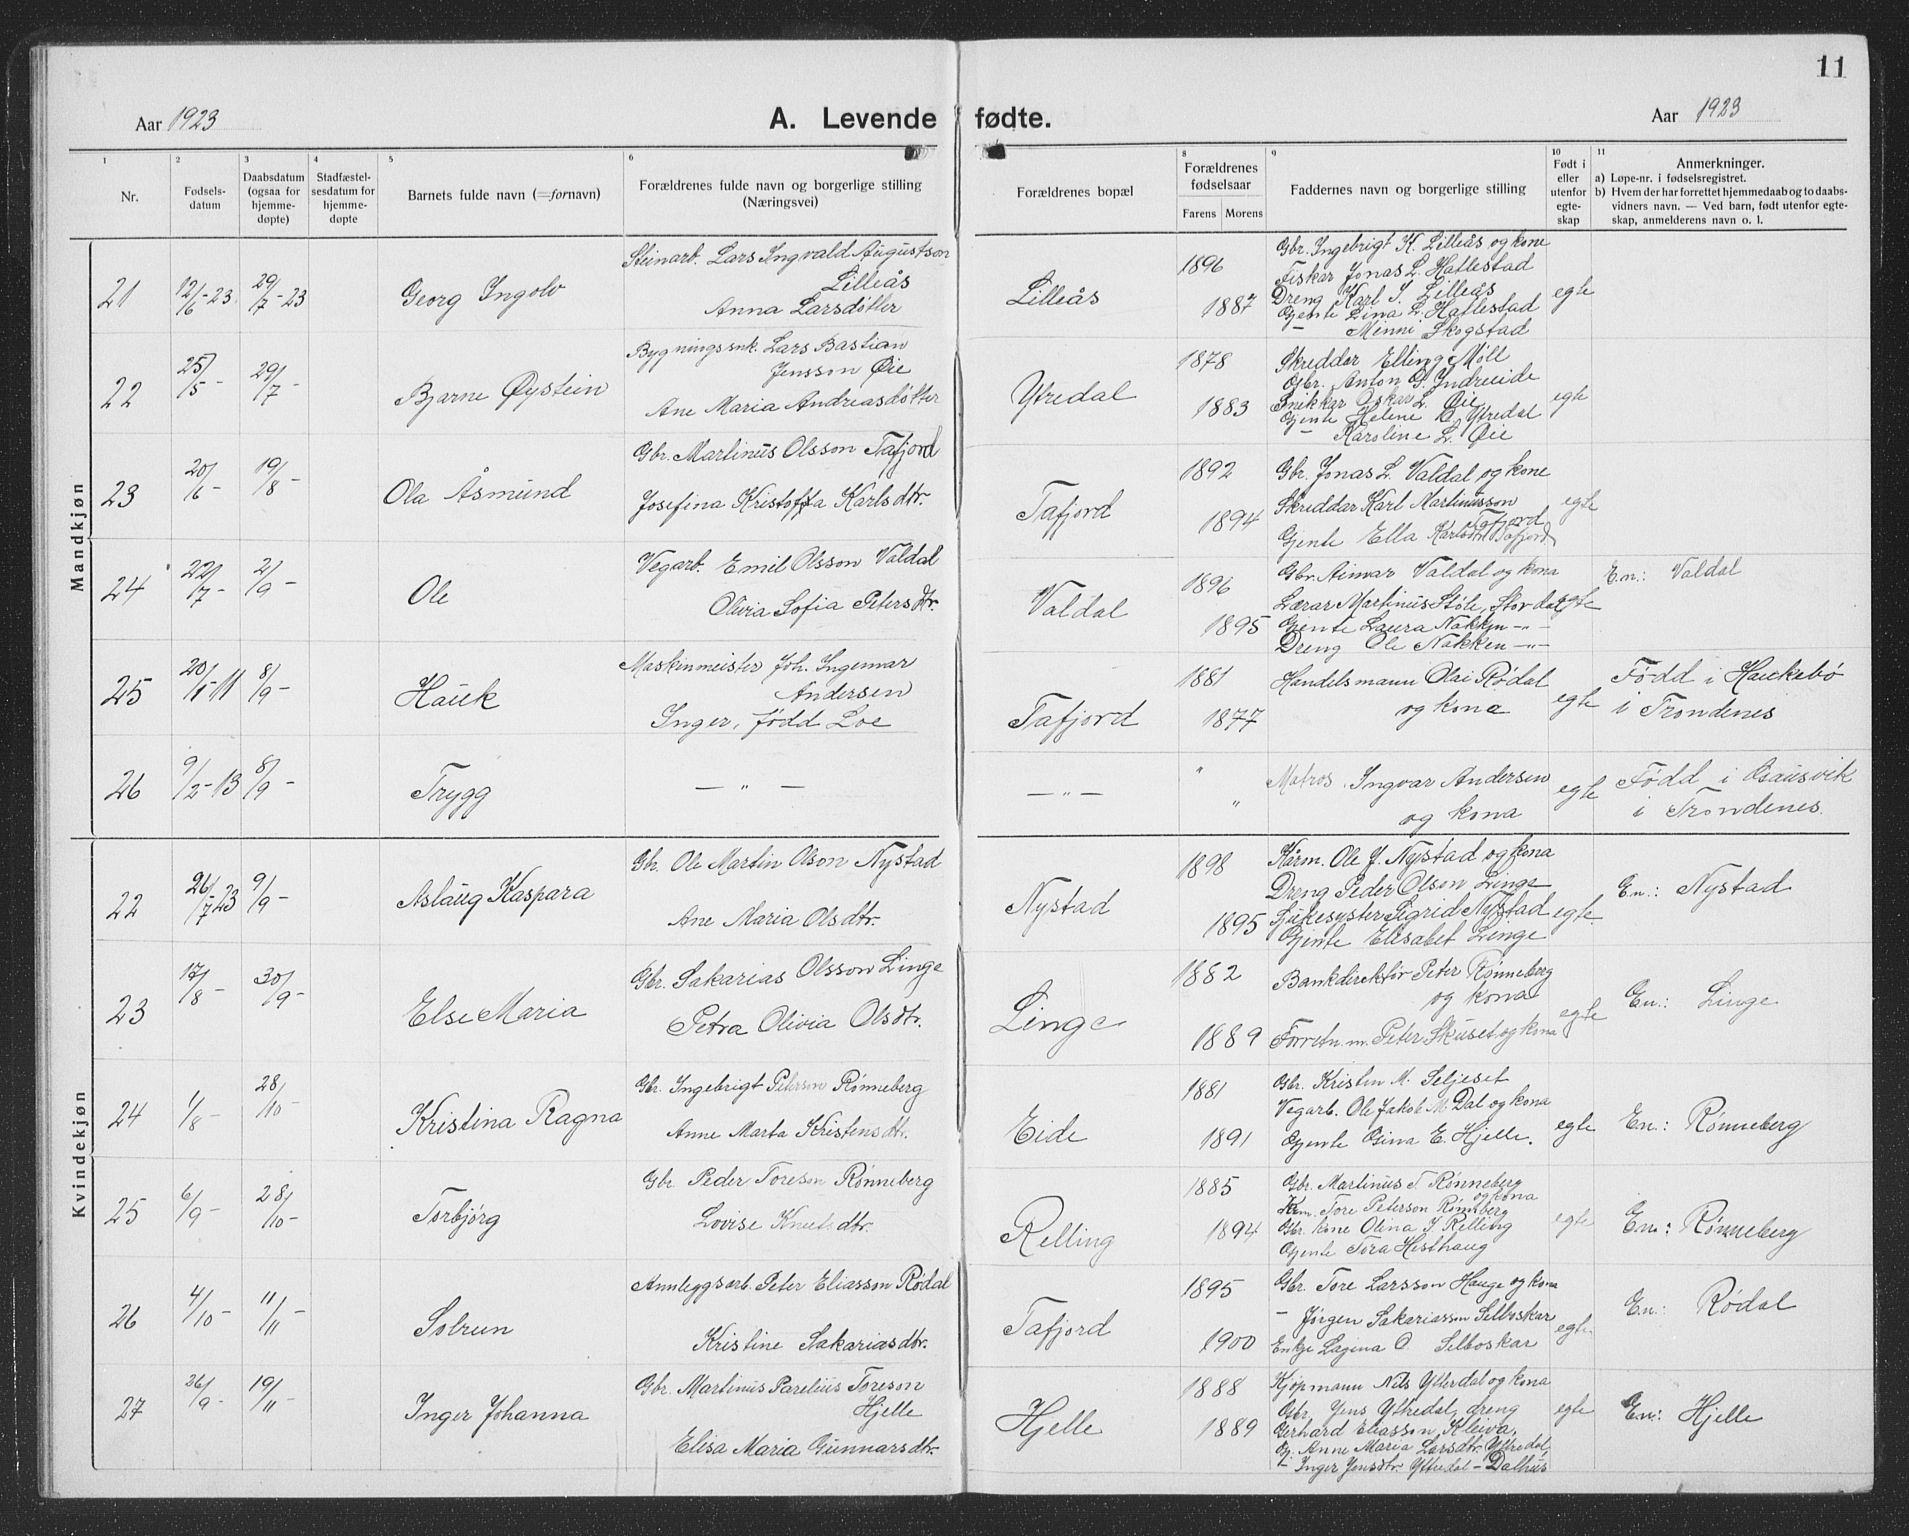 11
Aar 1923
A. Levende fødte.
Aar 1923
1 2 3 4 5 6 8 9 10 11
Nr.
Fødsels-
datum
Daabsdatum
(ogsaa for
hjemme-
døpte)
Stadfæstel-
sesdatum for
hjemme-
døpte
Barnets fulde navn (=fornavn)
Forældrenes fulde navn og borgerlige stilling
(Næringsvei)
Forældrenes bopæl
Forældrenes
fødselsaar
Farens Morens
Faddernes navn og borgerlige stilling
Født i
eller
utenfor
egte-
skap
Anmerkninger.
a) Løpe-nr. i fødselsregistret.
b) Hvem der har forrettet hjemmedaab og to daabs-
vidners navn. — Ved barn, født utenfor egte-
skap, anmelderens navn o. l.
Mandkjøn
21 12/6-23 29/7-23 Georg Ingolv
Steinarb. Lars Ingvald Augustson
Lilleås
Anna Larsdotter
Lilleås
1896
1887
Gbr. Ingebrigt K. Lilleås og kone
Fiskar Jonas L. Hatlestad
Dreng Karl J. Lilleås
Gjente Lina L. Hatlestad
— Minni Skogstad
egte
22 25/5- 29/7- Bjarne Øystein
Bygningssnk. Lars Bastian
Jensson Øie
Ane Maria Andreasdotter
Ytredal
1878
1883
Skreddar Elling Moll
Gbr. Anton G. Indreeide
Snikkar Oskar L. Øie
Gjente Helene O. Ytredal
— Karoline L. Øie
egte
23 20/6- 19/8- Ola Åsmund
Gbr. Martinus Olsson Tafjord
Josefina Kristoffa Karlsdtr.
Tafjord
1892
1894
Gbr. Jonas L. Valdal og kone
Skreddar Karl Martinusson
Tafjord
Gjente Ella Karlsdtr Tafjord
egte
24 22/7- 2/9- Ole
Vegarb. Emil Olsson Valdal
Olivia Sofia Petersdtr.
Valdal
1896
1895
Gbr. Aimar Valdal og kona
Lærar Martinus Støle, Stordal
Gjente Laura Nakken -"-
Dreng Ole Nakken -"-
egte
E.n.: Valdal
25 20/1-11 8/9- Hauk
Maskinmeister Joh. Ingemar
Andersen
Inger, fødd Loe
Tafjord
1881
1877
Handelsmann Olai Rødal
og kona
egte
Fødd i Haukebø
i Trondenes
26 9/2-13 8/9- Trygg
— " —
— " —
"
"
Matros Ingvar Andersen
og kona
egte
Fødd i
i Trondenes.
Kvindekjøn
22 26/7 23 9/9- Aslaug Kaspara
Gbr. Ole Martin Olson Nystad
Ane Maria Olsdtr.
Nystad
1898
1895
Kårm. Ole J. Nystad og kona
Dreng Peder Olson Linge
Sjukesyster Sigrid Nystad
Gjente Elisabet Linge
egte.
En.: Nystad
23 17/8- 30/9- Else Maria
Gbr. Sakarias Olsson Linge
Petra Olivia Olsdtr.
Linge
1882
1889
Bankdirektør Peter Rønneberg
og kona
Forretn.m. Peter Skuset og kona
egte
En.: Linge
24 1/8- 28/10- Kristina Ragna
Gbr. Ingebrigt Peterson Rønneberg
Anne Marta Kristensdtr.
Eide
1881
1891
Gbr. Kristen M. Seljeset
Vegarb. Ole Jakob M. Dal og kona
Gjente Osina E. Hjelle.
egte
En.: Rønneberg
25 6/9- 28/10- Torbjørg
Gbr. Peder Toreson Rønneberg
Lovise Knutsdtr.
Relling
1885
1894
Gbr. Martinus T. Rønneberg
og kona
Krm. Tore Peterson Rønneberg
Gbr. kone Olina J. Relling
Gjente Tora Hesthaug
egte
En.: Rønneberg
26 4/10- 11/11- Solrun
Annleggsarb. Peter Eliasson Rødal
Kristine Sakariasdtr.
Tafjord
1895
1900
Gbr. Tore Larsson Hauge og kona
— Jørgen Sakariasson Selboskar
Enkje Lagina O. Selboskar
egte
En.: Rødal
27 26/9- 19/11- Inger Johanna
Gbr. Martinus Parelius Toreson
Hjelle
Elisa Maria Gunnarsdtr.
Hjelle
1888
1889
Kjøpmann Nils Ytterdal og kona
Gbr. Jens Ytredal, dreng
Gerhard Eliasson Kleiva,
Gj. Anne Maria Larsdtr. Ytredal,
— Inger Jensdtr. Ytredal - Dalhus
egte
En.: Hjelle